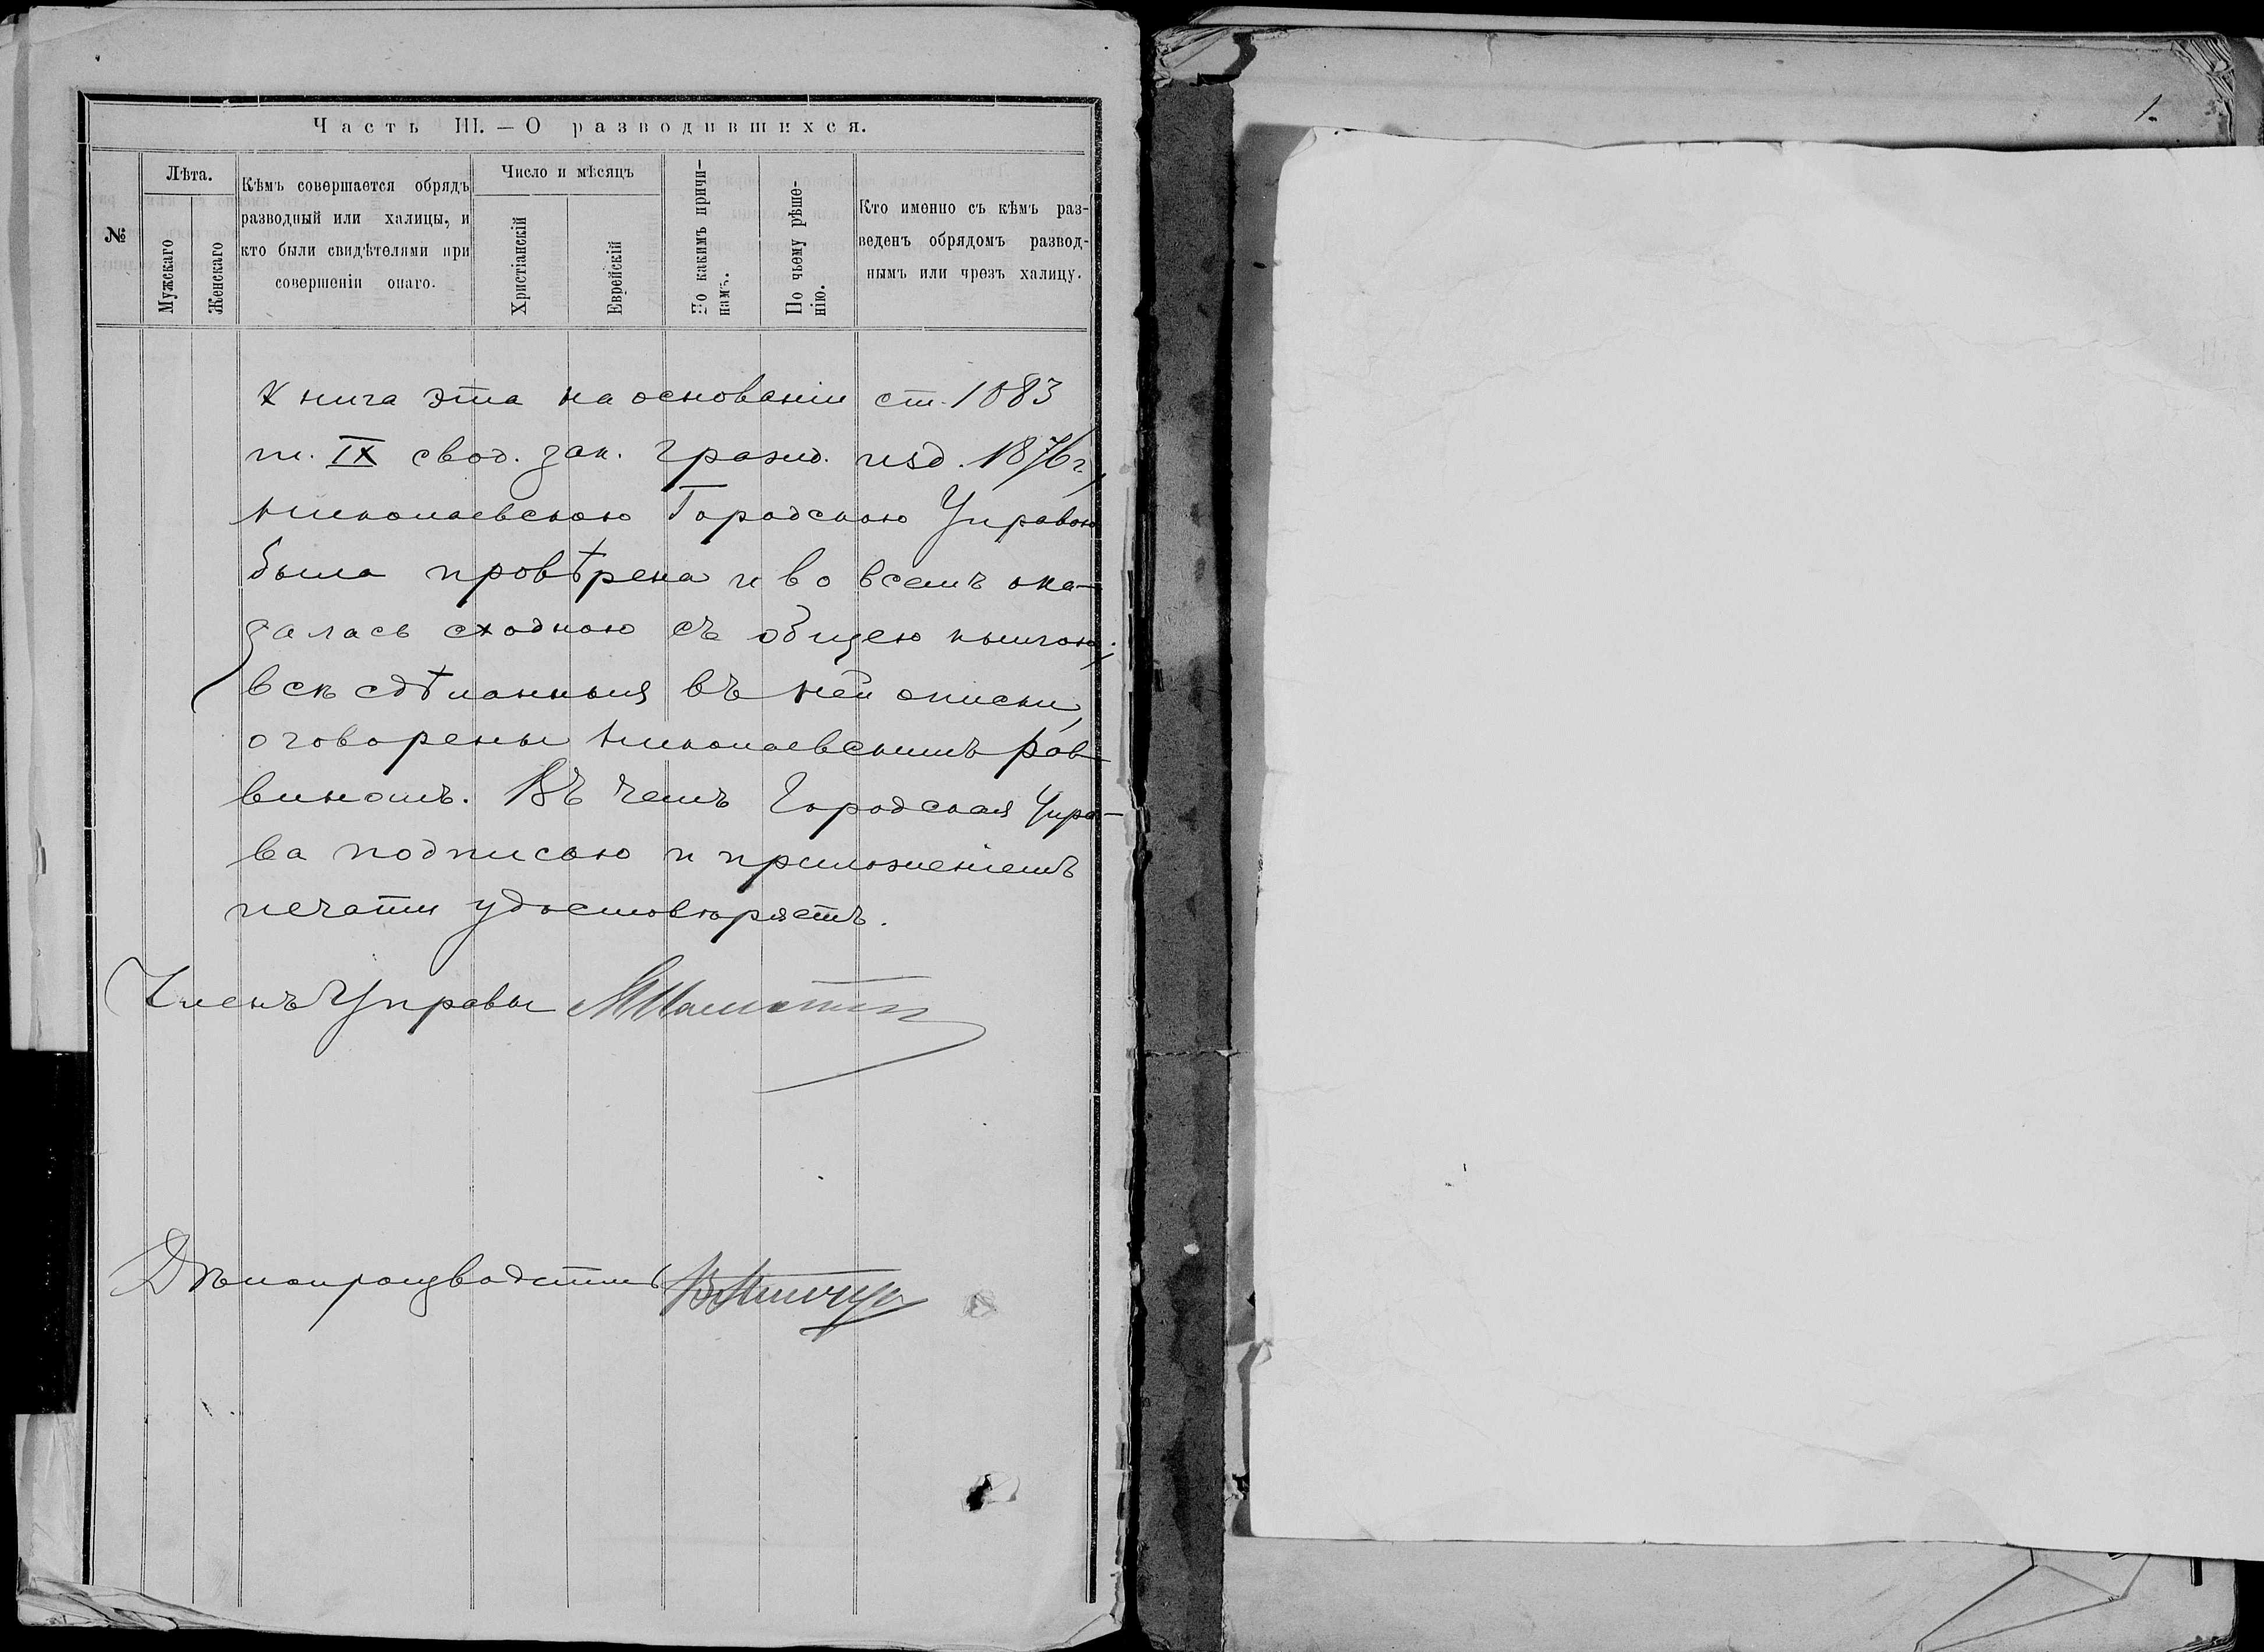 Часть III. — О разводившихся.
№
Лѣта.
Мужскаго
Женскаго
Кѣмъ совершается обрядъ
разводный или халицы, и
кто были свидѣтелями при
совершеніи онаго.
Число и мѣсяцъ
Христіанскій
Еврейскій
По какимъ причи-
намъ.
По чьему рѣше-
нію.
Кто именно съ кѣмъ раз-
веденъ обрядомъ развод-
нымъ или чрезъ халицу.
Книга эта на основаніи ст. 1083
т. IX свод. зак. гражд. изд. 1876 г.,
Николаевскою Городскою Управою
была провѣрена и во всемъ ока-
залась сходною съ общею книгою;
всѣ сдѣланныя въ ней описки,
оговорены Николаевскимъ Рав-
виномъ. Въ чемъ Городская Упра-
ва подписью и приложеніемъ
печати удостовѣряетъ.
Членъ Управы
Дѣлопроизводитель
1.